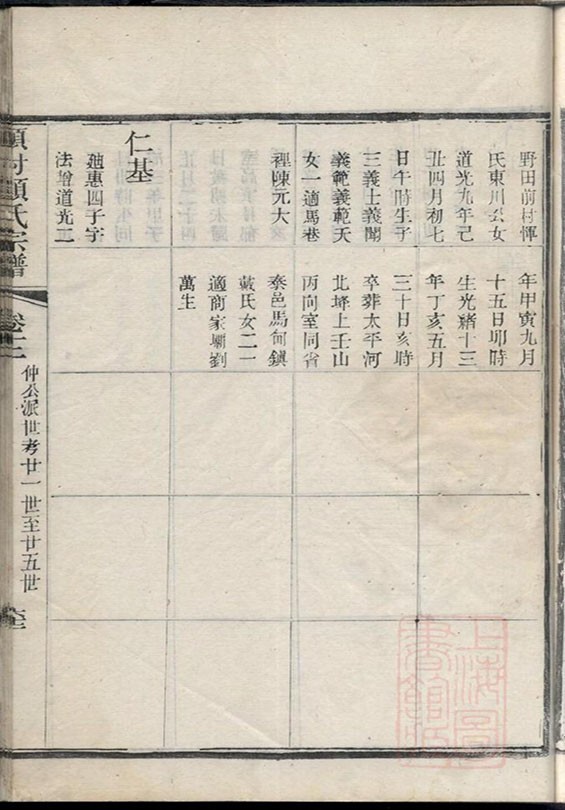 野田前村惲
氏東川公女
道光九年己
丑四月初七
日午時生子
三義上義聞
義範義範夭
女一適馬巷
裡陳元大
仁基
廸惠四子字
法增道光二
年甲寅九月
十五日卯時
生光緒十三
年丁亥五月
三十日亥時
卒葬太平河
北埄上壬山
丙向室同省
泰邑馬甸鎮
戴氏女二一
適商家壩劉
萬生
項村顧氏宗譜
卷十二
仲公派世考廿一世至廿五世
上海圖
書館